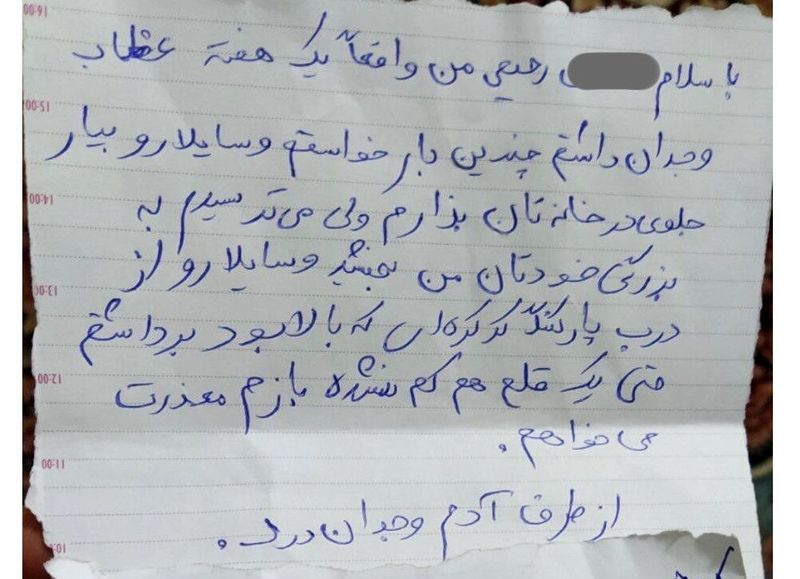 با سلام رحیمی من واقعاً یک هفته عظاب
وجدان داشتم چندین بار خواستم وسایلارو بیار
جلوی در خانه تان بذارم ولی می ترسیدم به
بزرگی خودتان من ببخشید وسایلارو از
درب پارکنگ کرکره ای که بالا بود برداشتم
حتی یک قلع هم کم نشده بازم معذرت
می خواهم .
از طرف آدم وجدان درد .
16:00
15:00
14:00
13:00
12:00
11:00